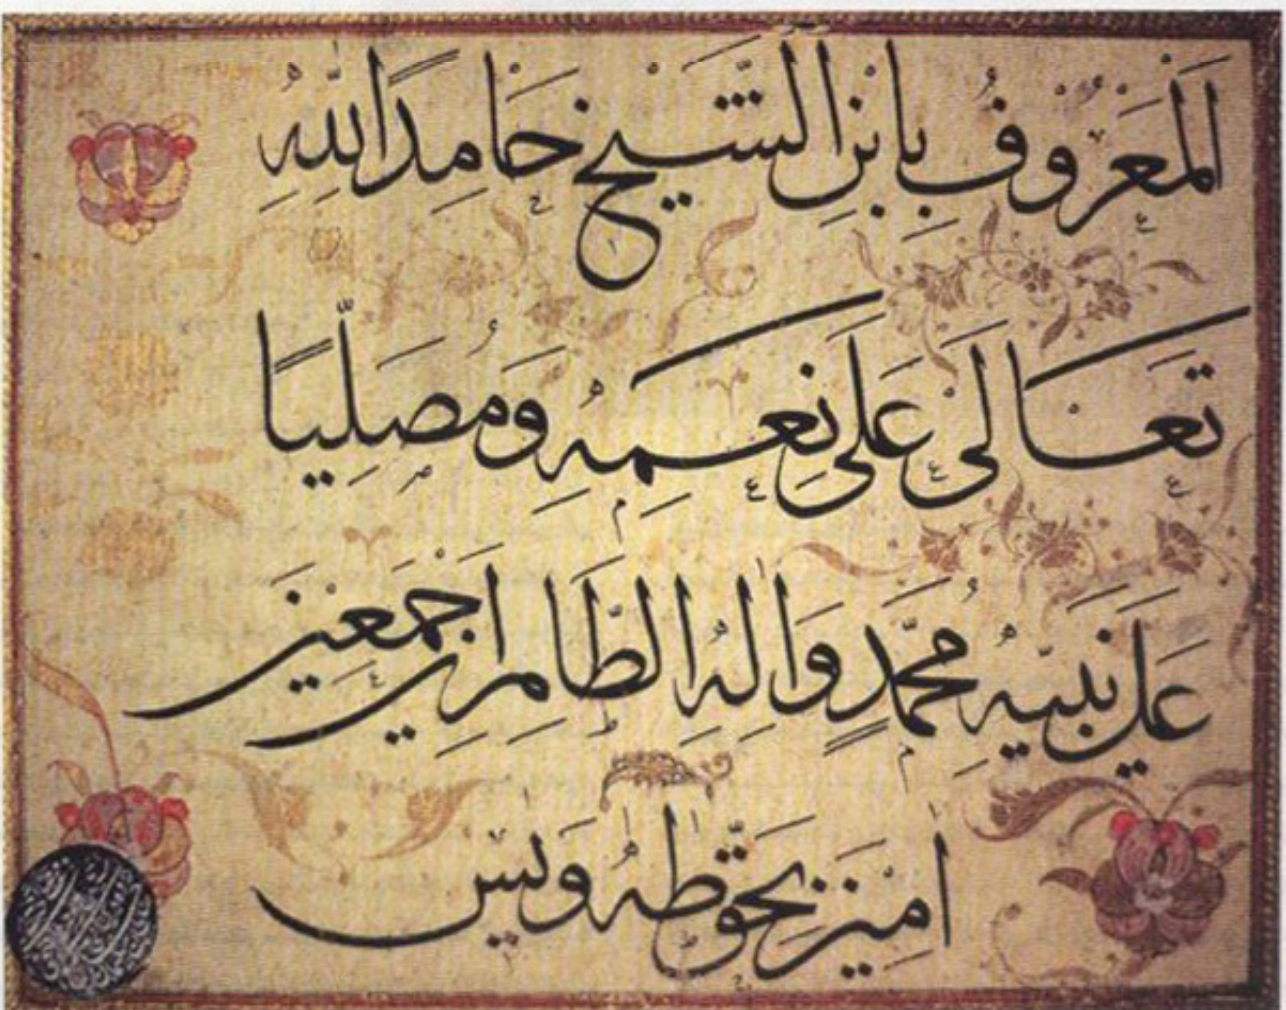 اَلْمَعْرُوفُ بِابْنِ الشَّيْخِ حَامِدًا لِلّٰهِ
تَعَالٰى عَلٰى نِعَمِهِ وَمُصَلِّيًا
عَلٰى نَبِيِّهِ مُحَمَّدٍ وَاٰلِهِ الطَّاهِرِينَ اَجْمَعِينَ
اٰمِينَ بِحَقِّ طٰهٰ وَيٰسٓ